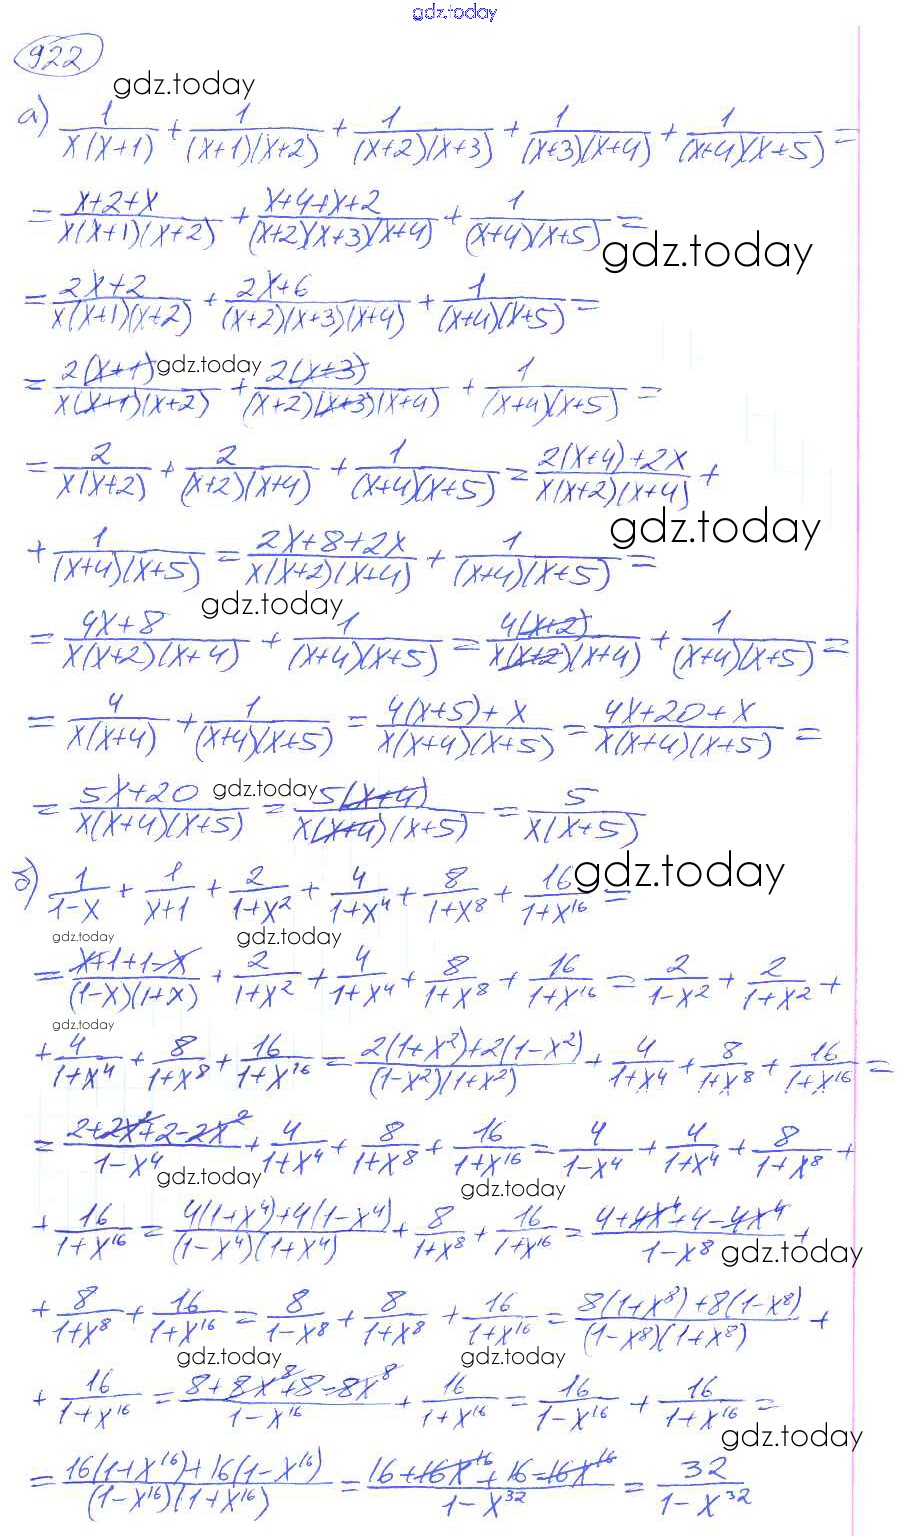 gdz.today
922
gdz.today
а) 1/(x(x+1)) + 1/((x+1)(x+2)) + 1/((x+2)(x+3)) + 1/((x+3)(x+4)) + 1/((x+4)(x+5)) =
= (x+2+x)/(x(x+1)(x+2)) + (x+4+x+2)/((x+2)(x+3)(x+4)) + 1/((x+4)(x+5)) =
gdz.today
= (2x+2)/(x(x+1)(x+2)) + (2x+6)/((x+2)(x+3)(x+4)) + 1/((x+4)(x+5)) =
gdz.today
= 2(x+1)/(x(x+1)(x+2)) + 2(x+3)/((x+2)(x+3)(x+4)) + 1/((x+4)(x+5)) =
= 2/(x(x+2)) + 2/((x+2)(x+4)) + 1/((x+4)(x+5)) = (2(x+4)+2x)/(x(x+2)(x+4)) +
gdz.today
+ 1/((x+4)(x+5)) = (2x+8+2x)/(x(x+2)(x+4)) + 1/((x+4)(x+5)) =
gdz.today
= (4x+8)/(x(x+2)(x+4)) + 1/((x+4)(x+5)) = 4(x+2)/(x(x+2)(x+4)) + 1/((x+4)(x+5)) =
= 4/(x(x+4)) + 1/((x+4)(x+5)) = (4(x+5)+x)/(x(x+4)(x+5)) = (4x+20+x)/(x(x+4)(x+5)) =
gdz.today
= (5x+20)/(x(x+4)(x+5)) = 5(x+4)/(x(x+4)(x+5)) = 5/(x(x+5))
gdz.today
б) 1/(1-x) + 1/(x+1) + 2/(1+x²) + 4/(1+x⁴) + 8/(1+x⁸) + 16/(1+x¹⁶) =
gdz.today gdz.today
= (x+1+1-x)/((1-x)(1+x)) + 2/(1+x²) + 4/(1+x⁴) + 8/(1+x⁸) + 16/(1+x¹⁶) = 2/(1-x²) + 2/(1+x²) +
gdz.today
+ 4/(1+x⁴) + 8/(1+x⁸) + 16/(1+x¹⁶) = (2(1+x²)+2(1-x²))/((1-x²)(1+x²)) + 4/(1+x⁴) + 8/(1+x⁸) + 16/(1+x¹⁶) =
= (2+2x²+2-2x²)/(1-x⁴) + 4/(1+x⁴) + 8/(1+x⁸) + 16/(1+x¹⁶) = 4/(1-x⁴) + 4/(1+x⁴) + 8/(1+x⁸) +
gdz.today gdz.today
+ 16/(1+x¹⁶) = (4(1+x⁴)+4(1-x⁴))/((1-x⁴)(1+x⁴)) + 8/(1+x⁸) + 16/(1+x¹⁶) = (4+4x⁴+4-4x⁴)/(1-x⁸) +
gdz.today
+ 8/(1+x⁸) + 16/(1+x¹⁶) = 8/(1-x⁸) + 8/(1+x⁸) + 16/(1+x¹⁶) = (8(1+x⁸)+8(1-x⁸))/((1-x⁸)(1+x⁸)) +
gdz.today gdz.today
+ 16/(1+x¹⁶) = (8+8x⁸+8-8x⁸)/(1-x¹⁶) + 16/(1+x¹⁶) = 16/(1-x¹⁶) + 16/(1+x¹⁶) =
gdz.today
= (16(1+x¹⁶)+16(1-x¹⁶))/((1-x¹⁶)(1+x¹⁶)) = (16+16x¹⁶+16-16x¹⁶)/(1-x³²) = 32/(1-x³²)